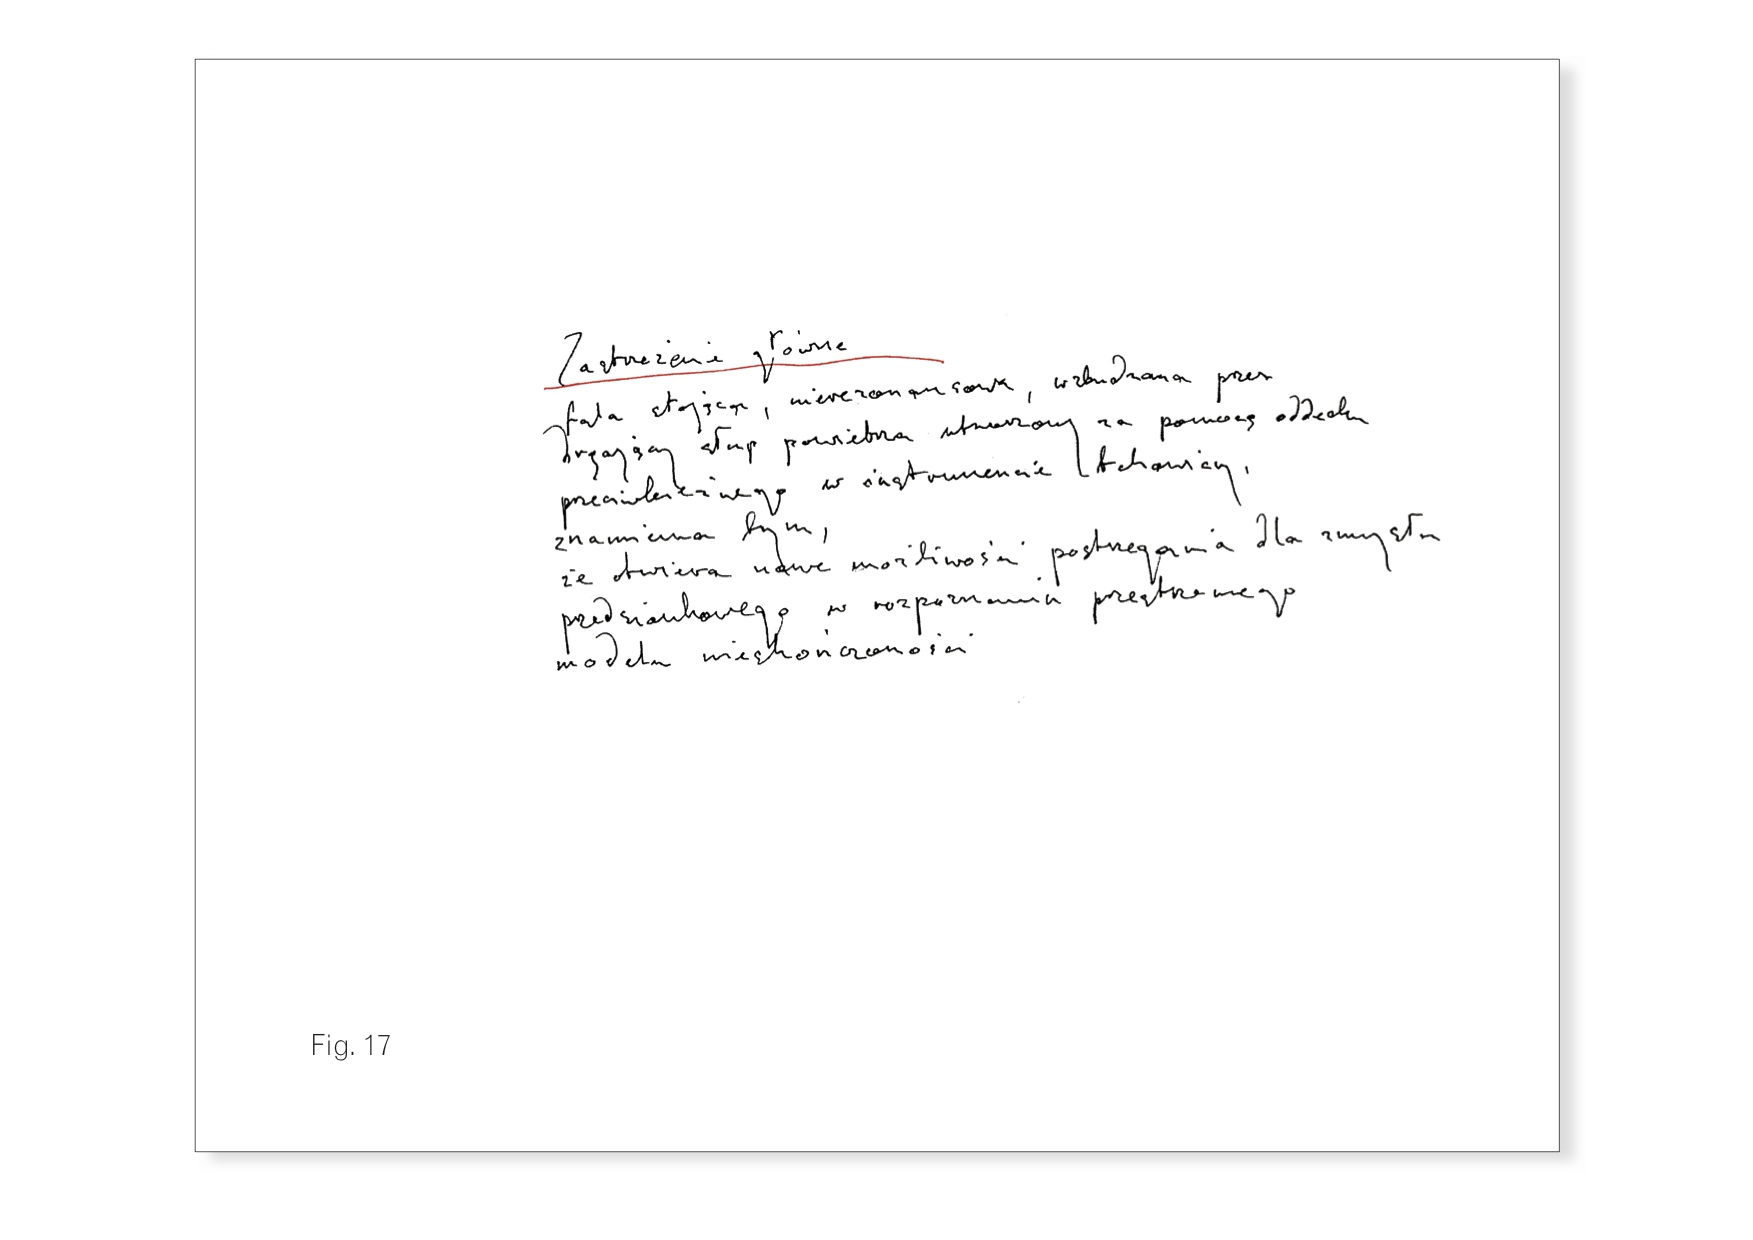 Zastrzeżenie główne
fala stojąca, nierezonansowa, wzbudzana przez
drgający słup powietrza utworzony za pomocą oddechu
przeciwbieżnego w instrumencie
znamienna tym,
że otwiera nowe możliwości postrzegania dla zmysłu
przedsionkowego w rozpoznaniu przestrzennego
modelu nieskończoności
Fig. 17